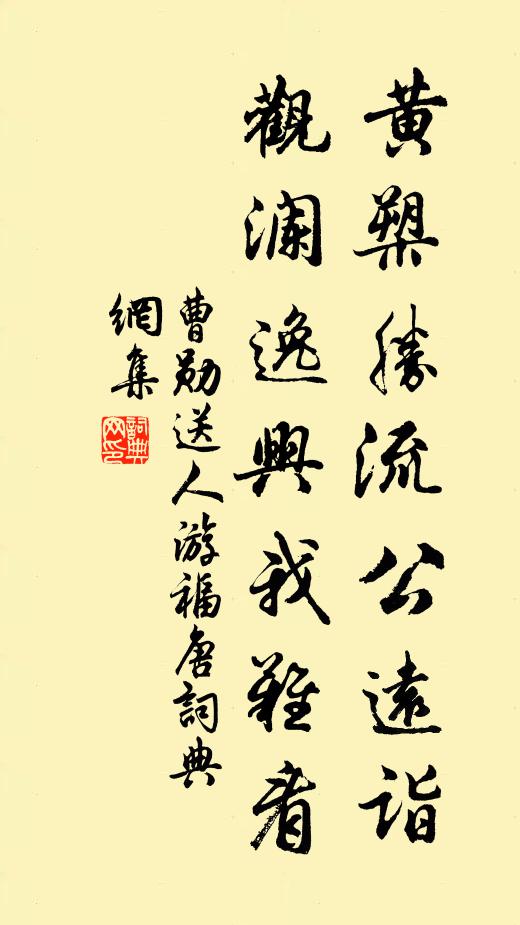 黄槊勝流公遠詣
觀瀾逸興我難看
曹勛送人游福唐詞典
網集
詞典
网印